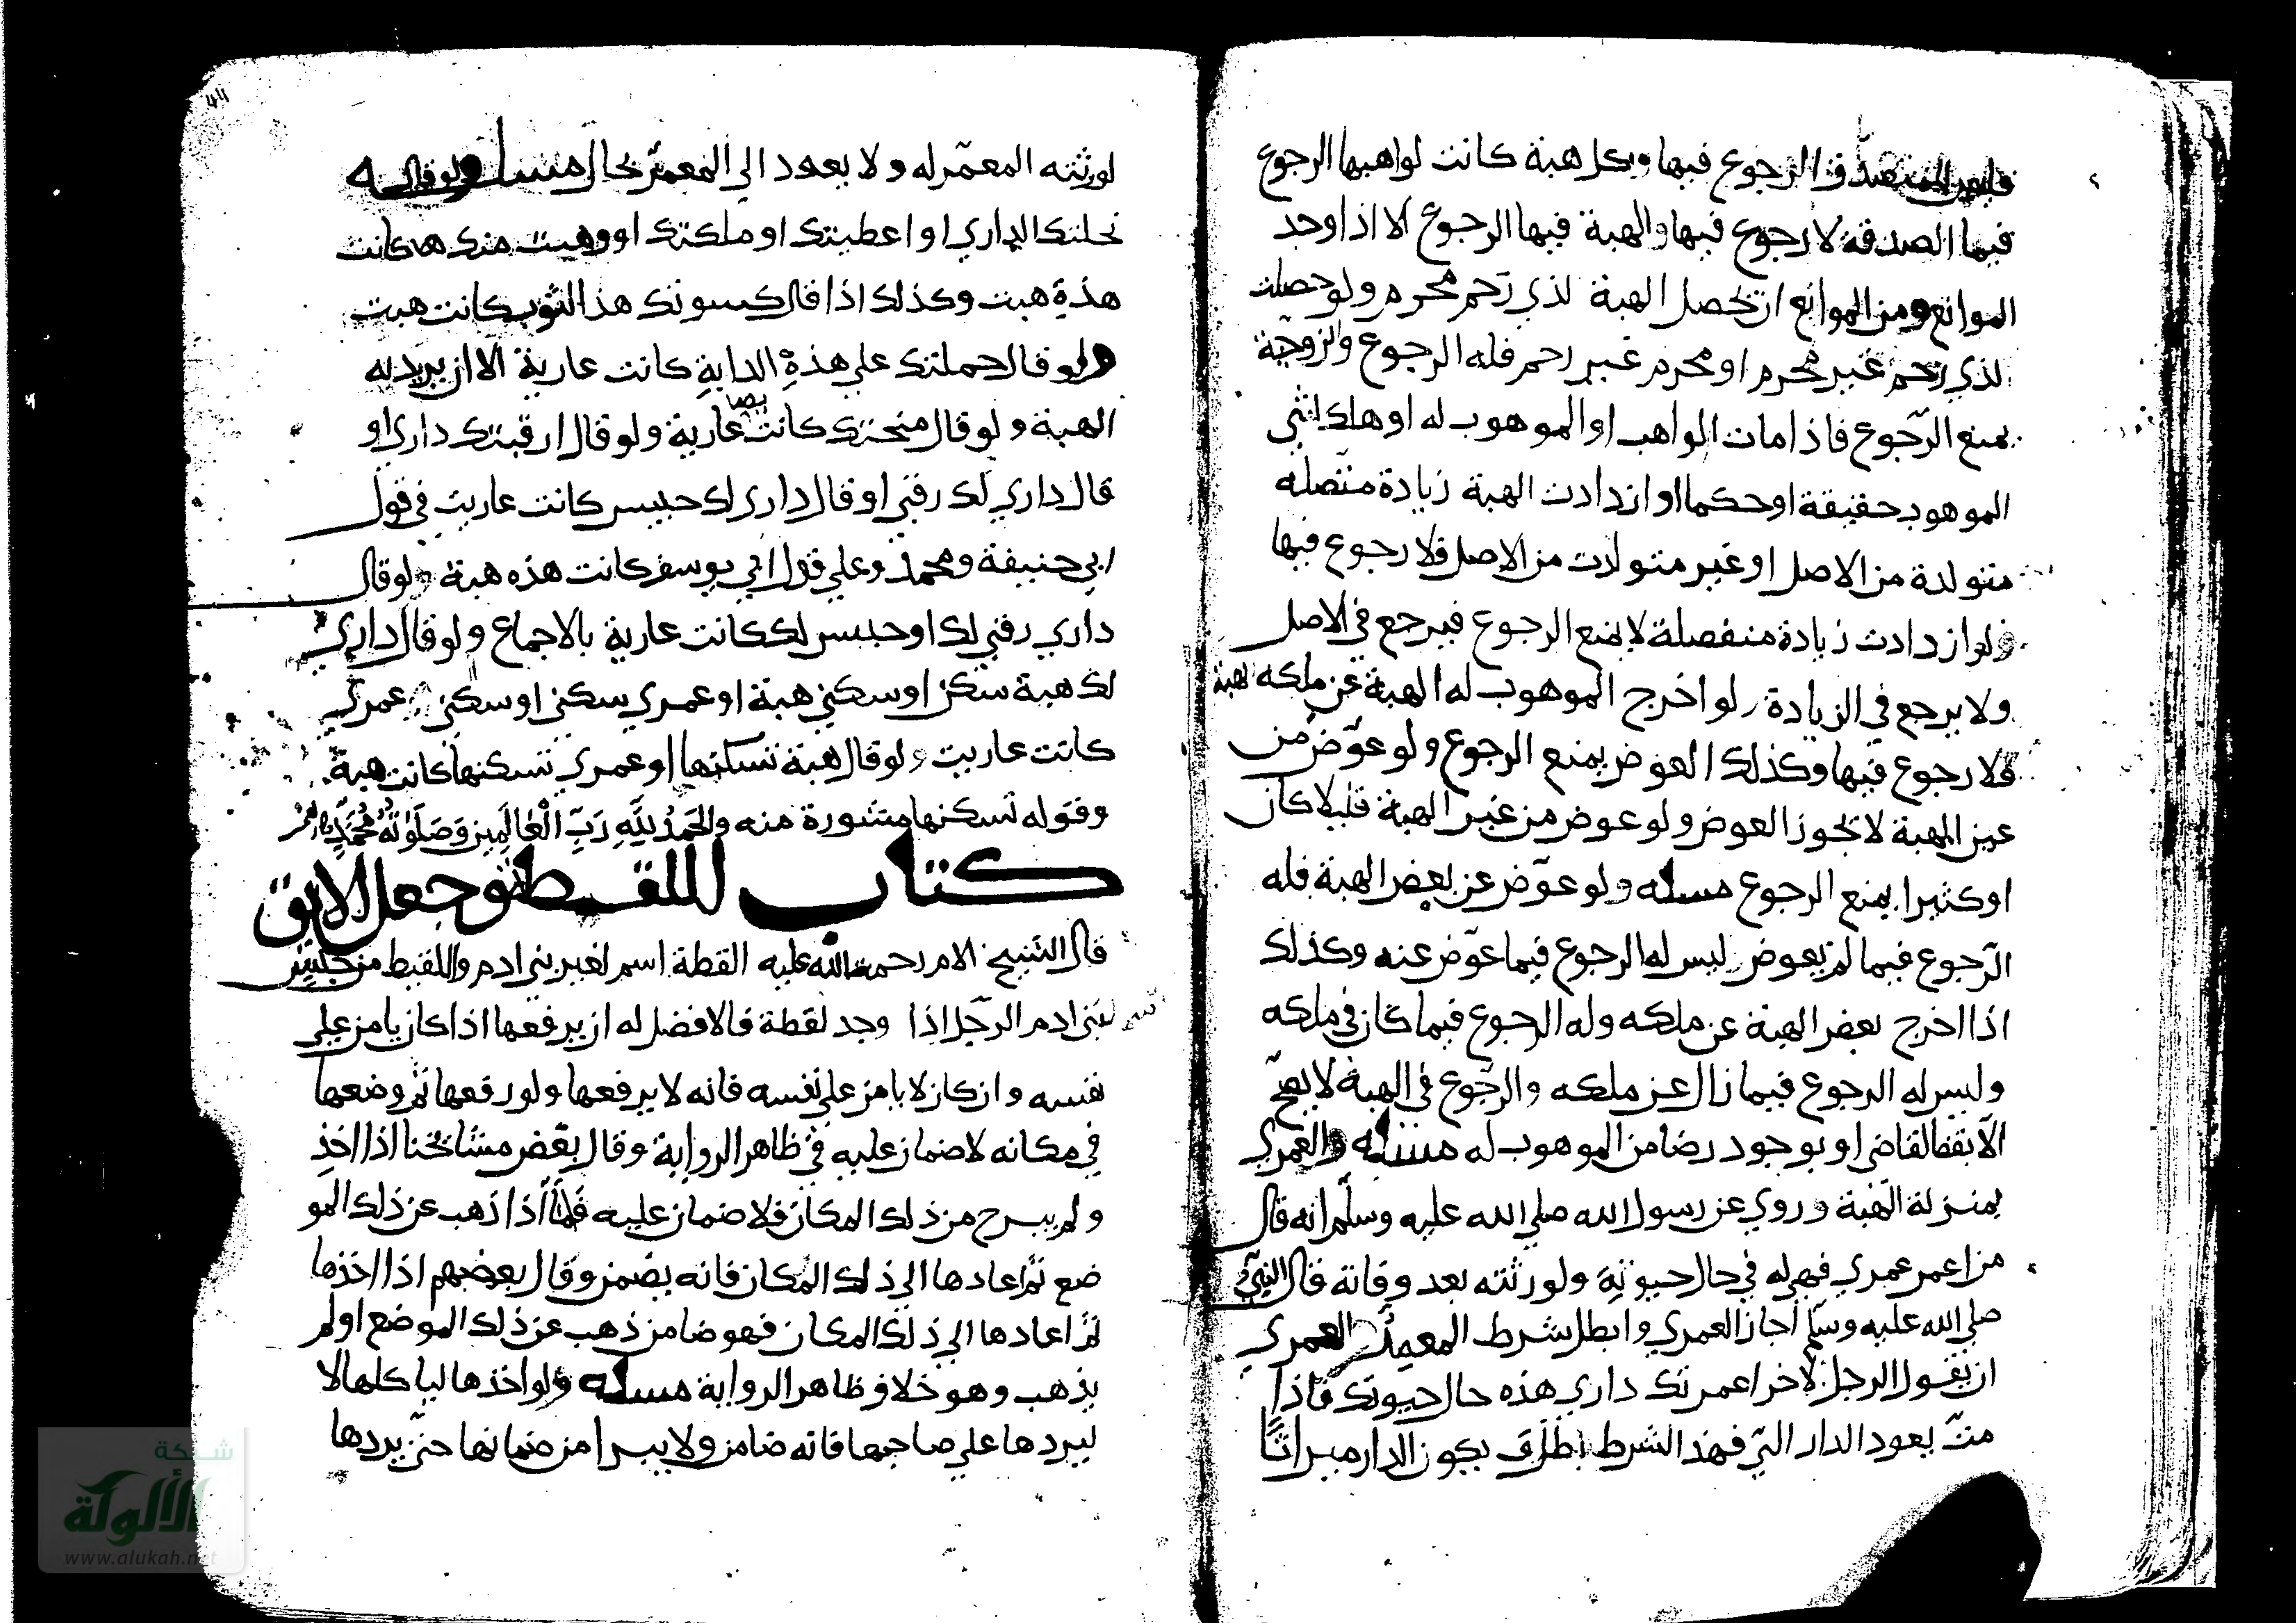 الرجوع فيها وبكل هبة كانت لواهبها الرجوع
فيها الصدقة لا رجوع فيها والهبة فيها الرجوع الا اذا وجد
الموانع ومن الموانع ان تحصل الهبة لذي رحم محرم ولو حصلت
لذي رحم غير محرم او محرم غير رحم فله الرجوع والزوجية
يمنع الرجوع فاذا مات الواهب او الموهوب له او هلك الشي
الموهوب حقيقة او حكما او ازدادت الهبة زيادة متصله
متولدة من الاصل او غير متولدت من الاصل فلا رجوع فيها
ولو ازدادت زيادة منفصلة لا يمنع الرجوع فيرجع في الاصل
ولا يرجع في الزيادة ولو اخرج الموهوب له الهبة عن ملكه
فلا رجوع فيها وكذلك العوض يمنع الرجوع ولو عوّض من
عين الهبة لا تجوز العوض ولو عوض من غير الهبة قليلا كان
او كثيرا يمنع الرجوع مسئله ولو عوّض عن بعض الهبة فله
الرّجوع فيما لم يعوض ليس له الرجوع فيما عوّض عنه وكذلك
اذا اخرج بعض الهبة عن ملكه وله الرجوع فيما كان في ملكه
وليس له الرجوع فيما زال عن ملكه والرّجوع في الهبة لا يصحّ
الا بقضا القاضي او بوجود رضا من الموهوب له مسئله والعمري
بمنزلة الهبة وروي عن رسول الله صلي الله عليه وسلّم انه قال
من اعمر عمري فهي له في حال حيوته ولورثته بعد وفاته قال النبي
صلي الله عليه وسلم اجاز العمري وابطل شرط المعمر العمري
ان يقول الرجل لاخر اعمرتك داري هذه حال حيوتك فاذا
متّ يعود الدار اليّ فهذ الشرط يكون الدار ميراثا
لورثته المعمّر له ولا يعود الي المعمّر بحال مسئله ولو قال
نحلتك الداري او اعطيتك او ملكتك او وهبت منك كانت
هذه هبت وكذلك اذا قال كسوتك هذ الثوب كانت هبت
ولو قال حملتك علي هذه الدابة كانت عارية الا ان يريد به
الهبة ولو قال منحتك كانت ايضا عارية ولو قال ارقبتك داري او
قال داري لك رقبي او قال داري لك حبيس كانت عاريت في قول
ابي حنيفة ومحمد وعلي قول ابي يوسف كانت هذه هبة ولو قال
داري رقبي لك او حبيس لك كانت عارية بالاجماع ولو قال داري
لك هبة سكن او سكني هبة او عمري سكني او سكني عمري
كانت عاريت ولو قال هبة تسكنها او عمري تسكنها كانت هبة
وقوله تسكنها مشورة منه والحَمْدُ لِلّٰهِ رَبِّ الْعَالَمِين
كتاب اللقيط وجعل الابق
قال الشيخ الام رحمة الله عليه القطة اسم لغير بني ادم واللقيط من
لبني ادم الرجل اذا وجد لقطة فالافضل له ان يرفعها اذا كان يامن علي
نفسه وان كان لا يامن علي نفسه فانه لا يرفعها ولو رفعها ثم وضعها
في مكانه لا ضمان عليه في ظاهر الرواية وقال بعض مشايخنا اذا اخذ
ولم يبرح من ذلك المكان فلا ضمان عليه فامّا اذا ذهب عن ذلك المو
ضع ثم اعادها الي ذلك المكان فانه يضمن وقال بعضهم اذا اخذها
ثم اعادها الي ذلك المكان فهو ضامن ذهب عن ذلك الموضع او لم
يذهب وهو خلاف ظاهر الرواية مسئله ولو اخذها لياكلها لا
ليردها علي صاحبها فانه ضامن ولا يبرا من ضمانها حتي يردها
شبكة
الألوكة
www.alukah.net